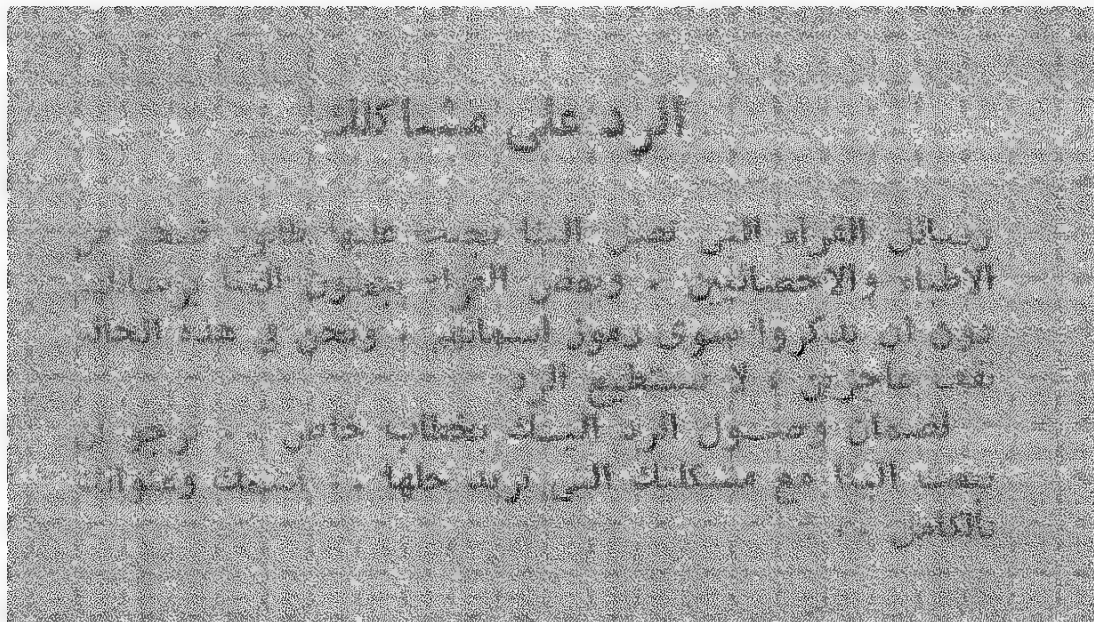 الرد على مشاكلك
رسائل القراء التي تصل الينا يجيب عليها طابور ضخم من
الاطباء والاخصائيين . وبعض القراء يبعثون الينا برسائلهم
دون أن يذكروا سوى رموز اسمائهم ، ونحن في هذه الحالة
نقف عاجزين ، لا نستطيع الرد
لضمان وصول الرد اليك بخطاب خاص .. نرجو ان
تبعث الينا مع مشكلتك التي تريد حلها .. اسمك وعنوانك
بالكامل ..